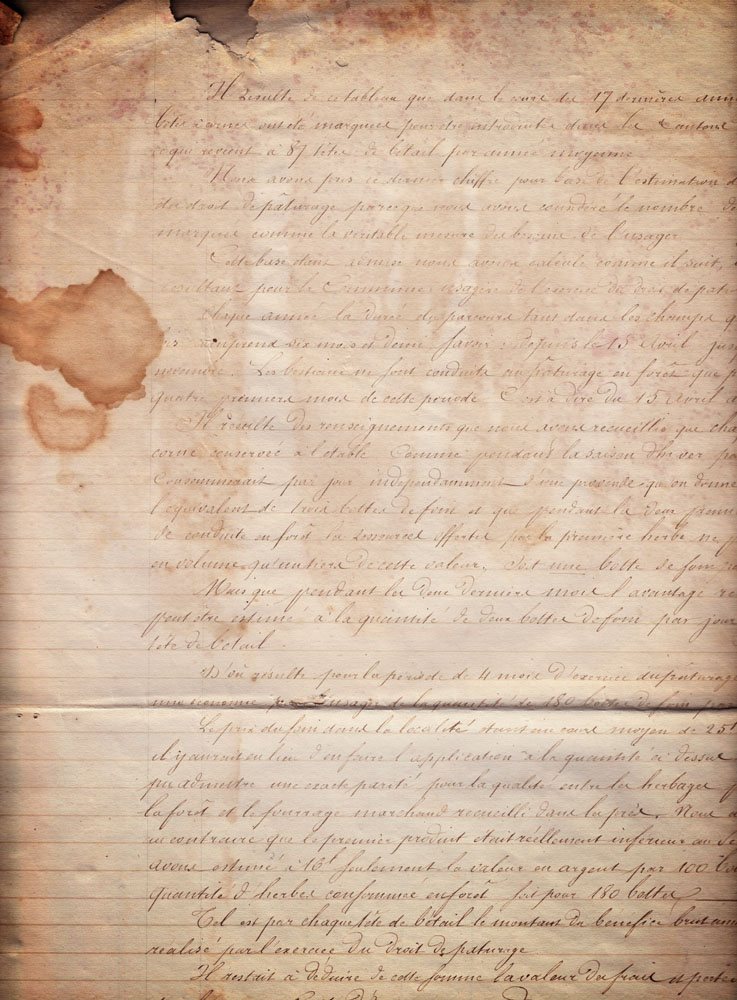 Il résulte de ce tableau que dans le cours des 17 dernières ann
bêtes à cornes ont été marquées pour être introduites dans le Cantons
ce qui revient à 87 têtes de bétail par année moyenne
Nous avons pris ce dernier chiffre pour base de l'estimation d
du droit de pâturage parceque nous avons considéré le nombre de
marques comme la véritable mesure des besoins de l'usager
Cette base étant admise nous avons calculé comme il suit,
résultant pour la Commune usagère de l'exercice du droit de patu
Chaque année la durée du parcours tant dans les champs q
comprend six mois et demi savoir depuis le 15 Avril jus
novembre. Les bestiaux ne sont conduits au pâturage en forêt que p
quatre premiers mois de cette période C'est à dire du 15 Avril a
Il résulte des renseignements que nous avons recueillis que cha
corne conservée à l'étable Comme pendant la saison d'hiver
Consommerait par jour indépendamment d'une provende qu'on donne
l'équivalent de trois bottes de foin et que pendant les deux premi
de conduite en forêt la ressource offerte par la première herbe ne
en volume qu'un tiers de cette valeur, soit une botte de foin
Mais que pendant les deux derniers mois l'avantage re
peut être estimé à la quantité de deux bottes de foin par jour
tête de bétail
D'où résulte pour la période de 4 mois d'exercice du pâturage
une économie par l'usager de la quantité de 180 bottes de foin
Le prix du foin dans la localité étant au cours moyen de 25f
il y aurait eu lieu d'en faire l'application à la quantité ci dessus
pu admettre une exacte parité pour la qualité entre les herbages
la forêt et le fourrage marchand recueilli dans les prés. Nous a
au contraire que le premier produit était réellement inférieur au
avons estimé à 16f seulement la valeur en argent par 100 bo
quantité d'herbes consommée en forêt soit pour 180 bottes
Tel est par chaque tête de bétail le montant du bénéfice brut ann
réalisé par l'exercice du droit de pâturage
Il restait à déduire de cette somme la valeur des frais et perte